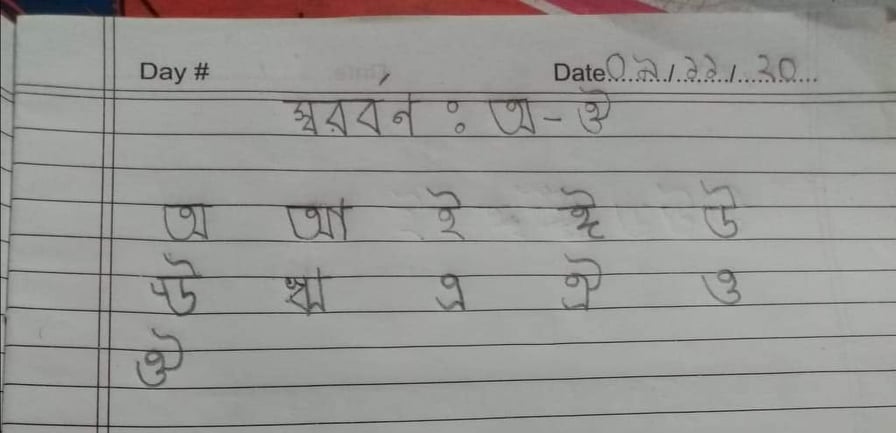 Day # Date ০৯/১১/২০
স্বরবর্ন : অ - ঔ
অ আ ই ঈ উ
ঊ ঋ এ ঐ ও
ঔ